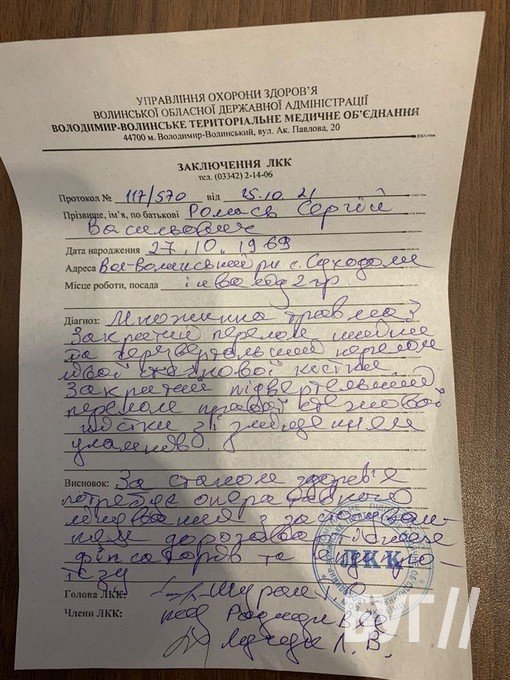 УПРАВЛІННЯ ОХОРОНИ ЗДОРОВ'Я
ВОЛИНСЬКОЇ ОБЛАСНОЇ ДЕРЖАВНОЇ АДМІНІСТРАЦІЇ
ВОЛОДИМИР-ВОЛИНСЬКЕ ТЕРИТОРІАЛЬНЕ МЕДИЧНЕ ОБ'ЄДНАННЯ
44700 м. Володимир-Волинський, вул. Ак. Павлова, 20
ЗАКЛЮЧЕННЯ ЛКК
тел. (03342) 2-14-06
Протокол № 117/570 від 25.10.21
Прізвище, ім'я, по батькові Сергій
Васильович
Дата народження 27.10.1969
Адреса с. Суходоли
Місце роботи, посада інвалід 2 гр.
Діагноз: Множинна травма:
Закритий перелом шийки
та черезвертельний перелом
лівої стегнової кістки.
Закритий підвертельний
перелом правої стегнової
кістки зі зміщенням
уламків.
Висновок: За станом здоров'я
потребує оперативного
лікування з застосуванням
фіксаторів та
ЛКК
Голова ЛКК:
Члени ЛКК:
Л. В.
БУГ//